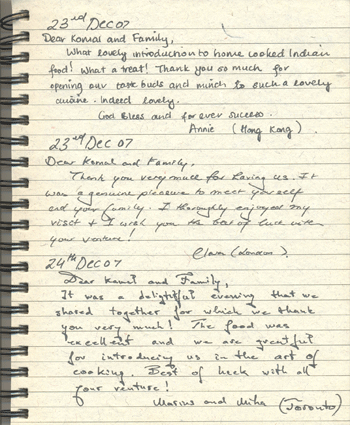 23rd Dec 07
Dear Komal and Family,
What lovely introduction to home cooked Indian
food! What a treat! Thank you so much for
opening our taste buds and minds to such a lovely
cuisine. Indeed lovely.
God Bless and for ever success.
Annie (Hong Kong)
23rd Dec 07
Dear Komal and Family,
Thank you very much for having us. It
was a genuine pleasure to meet yourself
and your family. I thoroughly enjoyed my
visit & I wish you the best of luck with
your venture!
(London)
24th Dec 07
Dear Komal and Family,
It was a delightful evening that we
shared together for which we thank
you very much! The food was
excellent and we are greatful
for introducing us in the art of
cooking. Best of luck with all
your venture!
Marius and Mika (Toronto)